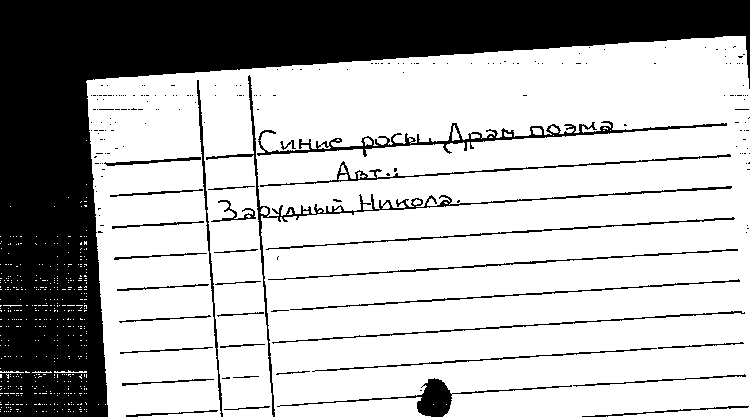 Синие росы. Драм поэма.
Авт.:
Зарудный, Никола.